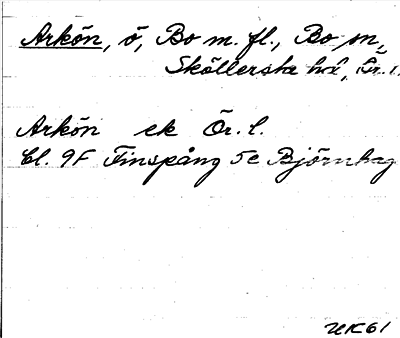 Arkön, ö, Bo m. fl., Bo sn,
Sköllersta hd, Ör. l.
Arkön ek Ör. l.
Bl. 9F Finspång 5e Björnhag
UK61